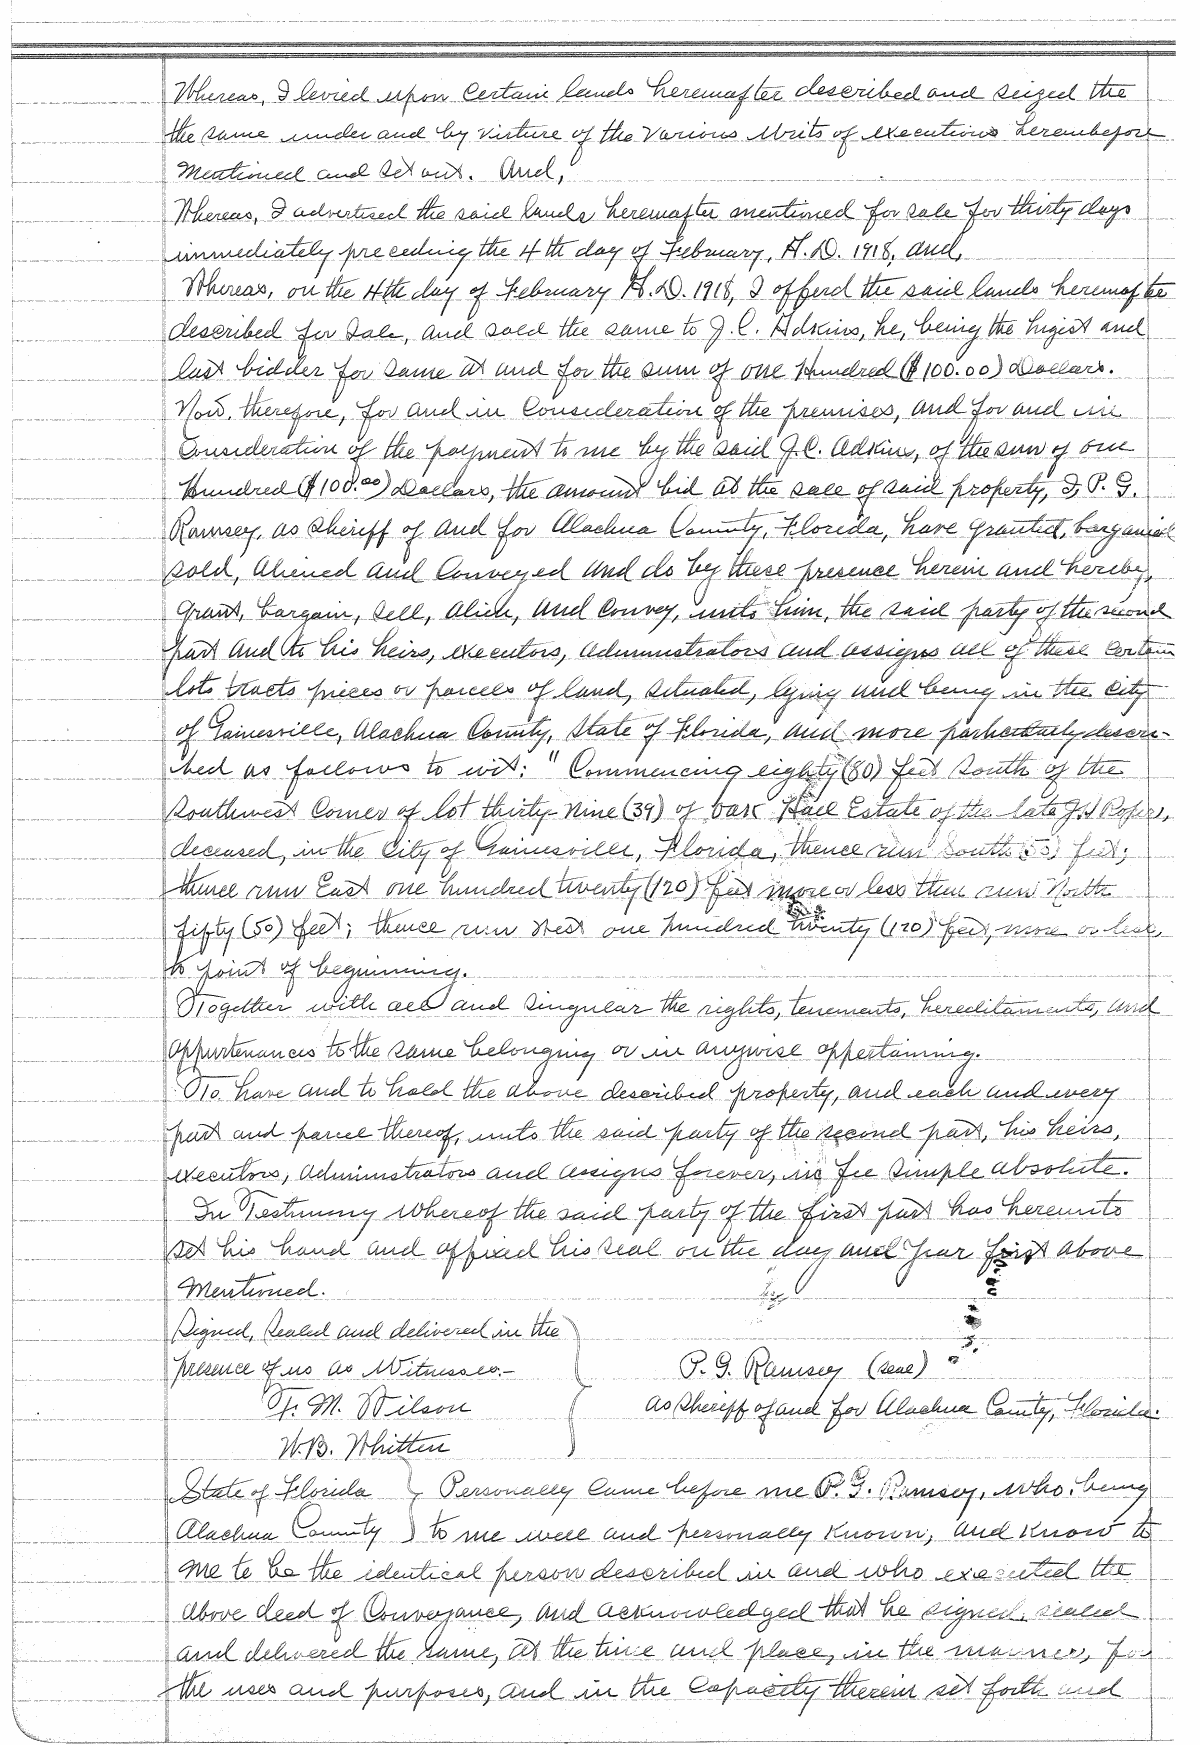 Whereas, I levied upon Certain lands hereinafter described and seized the
the same under and by virture of the Various Writs of executions hereinbefore
Mentioned and set out. And,
Whereas, I advertised the said lands hereinafter mentioned for sale for thirty days
immediately preceding the 4th day of February, A.D. 1918, and,
Whereas, on the 4th day of February A.D. 1918, I offerd the said lands hereinafter
described for Sale, and sold the same to J.C. Adkins, he, being the higist and
last bidder for same at and for the sum of one Hundred ($100.00) Dollars.
Now, therefore, for and in Consideration of the premises, and for and in
Consideration of the payment to me by the said J.C. Adkins, of the sum of one
Hundred ($100.00) Dollars, the amount bid at the sale of said property, I, P.G.
Ramsey, as Sheriff of and for Alachua County, Florida, have granted, bargained
sold, Aliened and Conveyed and do by these presence herein and hereby,
Grant, bargain, Sell, Alien, and Convey, unto him, the said party of the second
part and to his heirs, executors, administrators and assigns all of these Certain
lots tracts pieces or parcels of land, situated, lying and being in the City
of Gainesville, Alachua County, State of Florida, and more particularly descri-
bed as follows to wit: " Commencing eighty (80) feet South of the
Southwest Corner of lot thirty-Nine (39) of Estate of the late Roper,
deceased, in the City of Gainesville, Florida, thence run South (50) feet;
thence run East one hundred twenty (120) feet more or less then run North
fifty (50) feet; thence run West one hundred twenty (120) feet, more or less,
to point of beginning.
Together with all and singular the rights, tenements, hereditaments, and
appurtenances to the same belonging or in anywise appertaining.
To have and to hold the above described property, and each and every
part and parcel thereof, unto the said party of the second part, his heirs,
executors, administrators and assigns forever, in fee simple absolute.
In Testimony Whereof the said party of the first part has hereunto
set his hand and affixed his seal on the day and Year first above
Mentioned.
Signed, Sealed and delivered in the
presence of us as Witnesses.- P.G. Ramsey (seal)
F. M. Wilson as Sheriff of and for Alachua County, Florida.
W.B. Whitten
State of Florida ) Personally Came before me P.G. Ramsey, who, being
Alachua County ) to me well and personally known, and know to
me to be the identical person described in and who executed the
above deed of Conveyance, and acknowledged that he signed, sealed
and delivered the same, at the time and place, in the manner, for
the uses and purposes, and in the Capacity therein set forth and